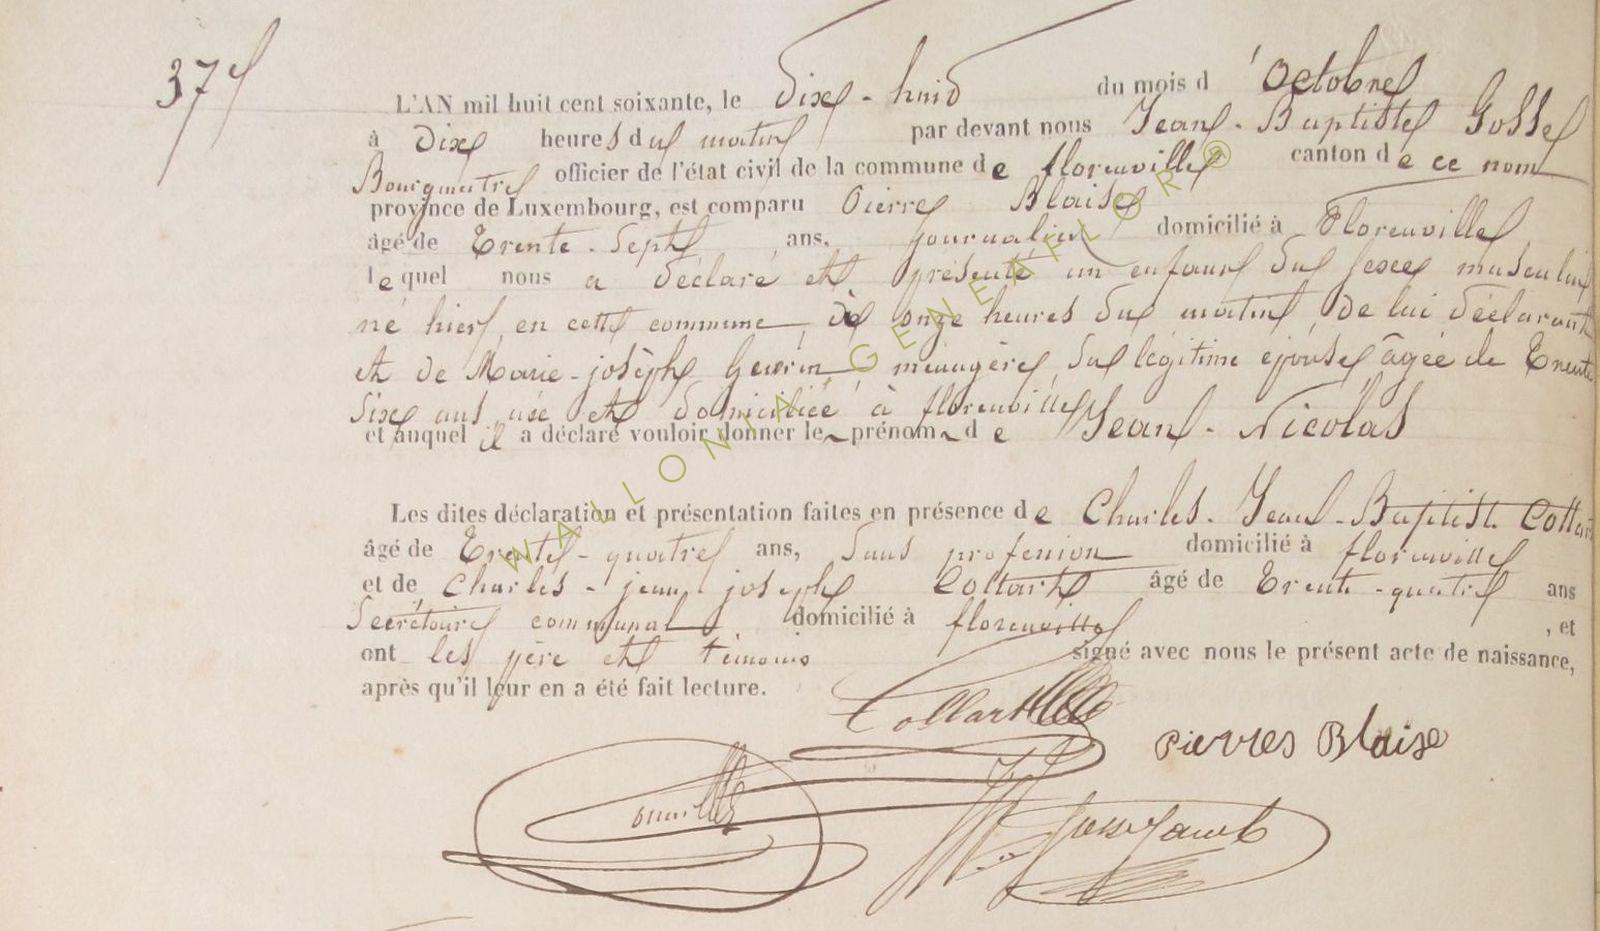 37
L'AN mil huit cent soixante, le dix-huit du mois d'Octobre
à Dix heures du matin par devant nous Jean-Baptiste Gosse
Bourgmestre officier de l'état civil de la commune de florenville canton de ce nom
province de Luxembourg, est comparu Pierre Blaise
âgé de Trente-Sept ans, journalier domicilié à Florenville
lequel nous a déclaré et présenté un enfant du sexe masculin
né hier en cette commune à onze heures du matin, de lui déclarant
et de Marie-josèphe Guerin ménagère, sa légitime épouse âgée de Trente
Six ans née et domiciliée à florenville
et auquel il a déclaré vouloir donner le prénom de Jean-Nicolas
Les dites déclaration et présentation faites en présence de Charles-Jean-Baptiste Collart
âgé de Trente-quatre ans, Sans profession domicilié à florenville
et de Charles-jean joseph Collart âgé de Trente-quatre ans
Secrétaire communal domicilié à florenville, et
ont les père et témoins signé avec nous le présent acte de naissance,
après qu'il leur en a été fait lecture.
Collart
Pierres Blaise
WALLONIA GENEAFLOR®